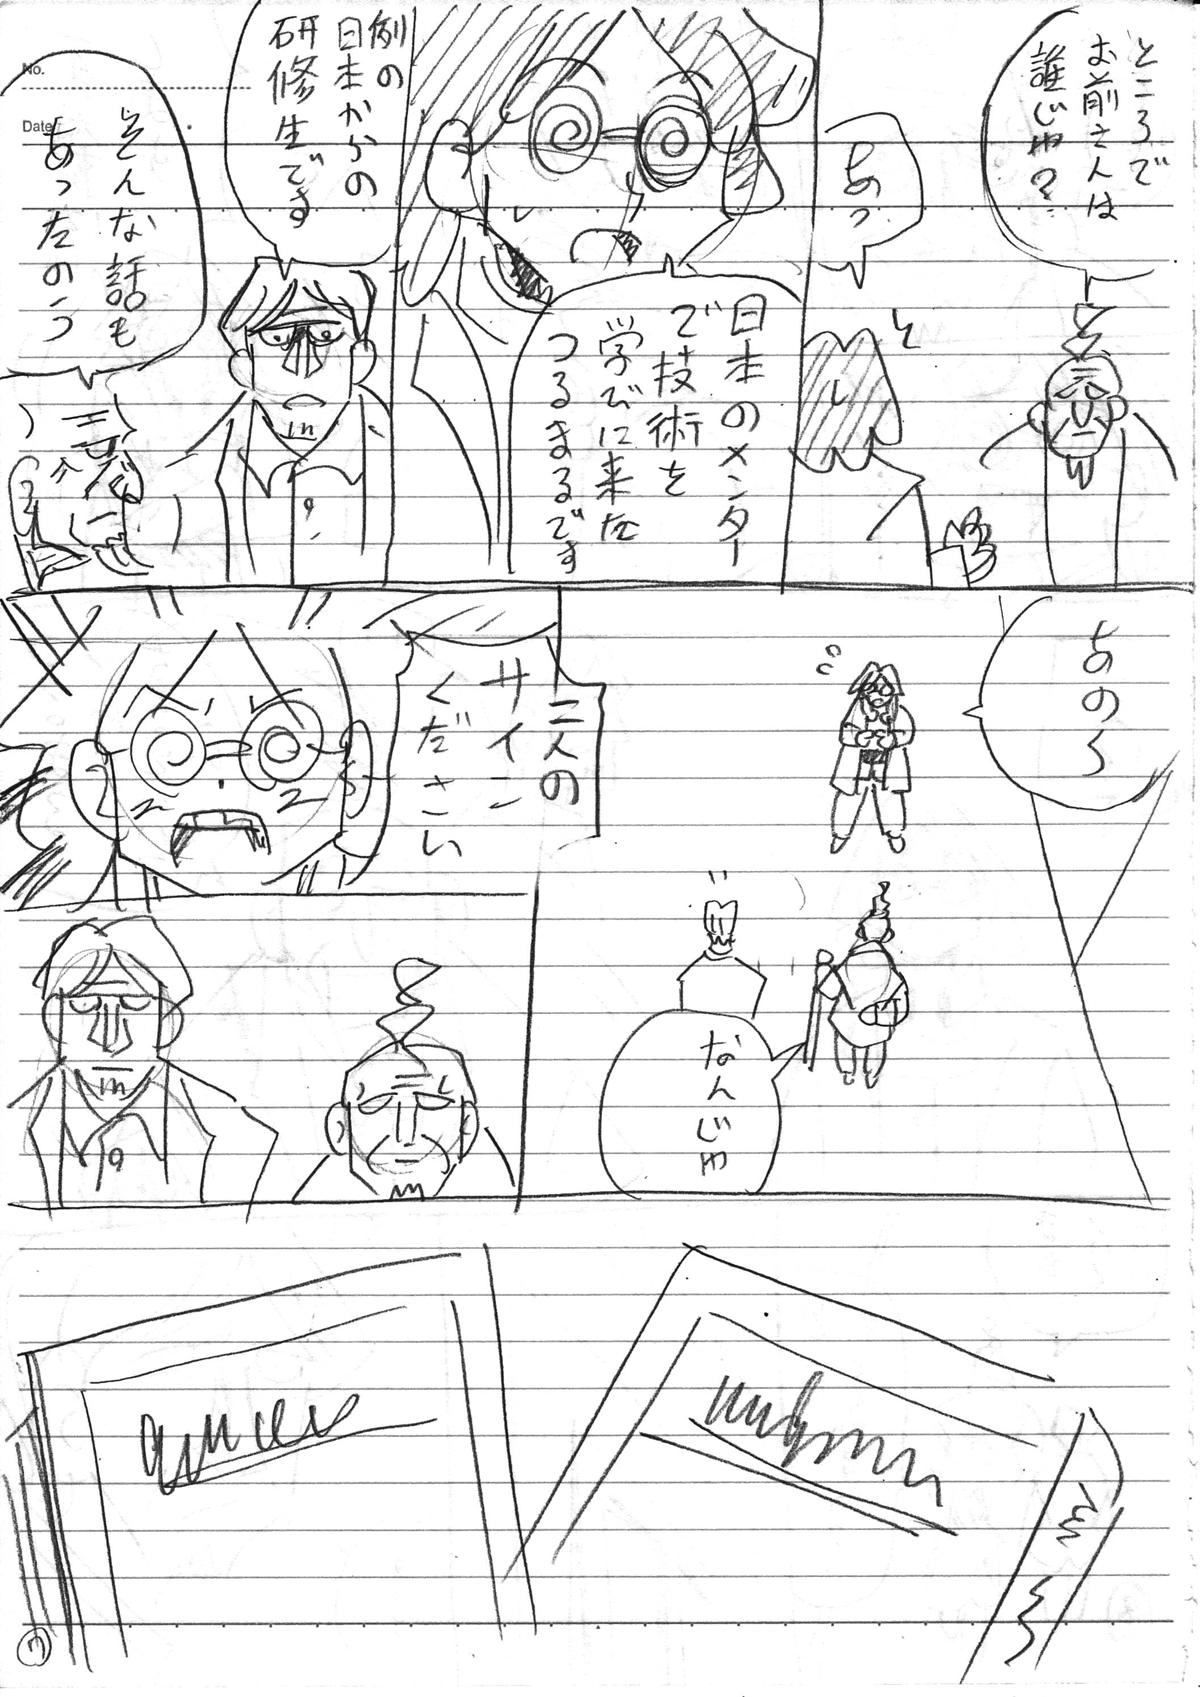 ところで
お前さんは
誰じゃ?
あっ
と
日本のメンター
で技術を
学びに来た
つるまるです
例の
日本からの
研修生です
そんな話も
あったのう
No.
Date
あのぅ
なんじゃ
二人の
サイン
ください